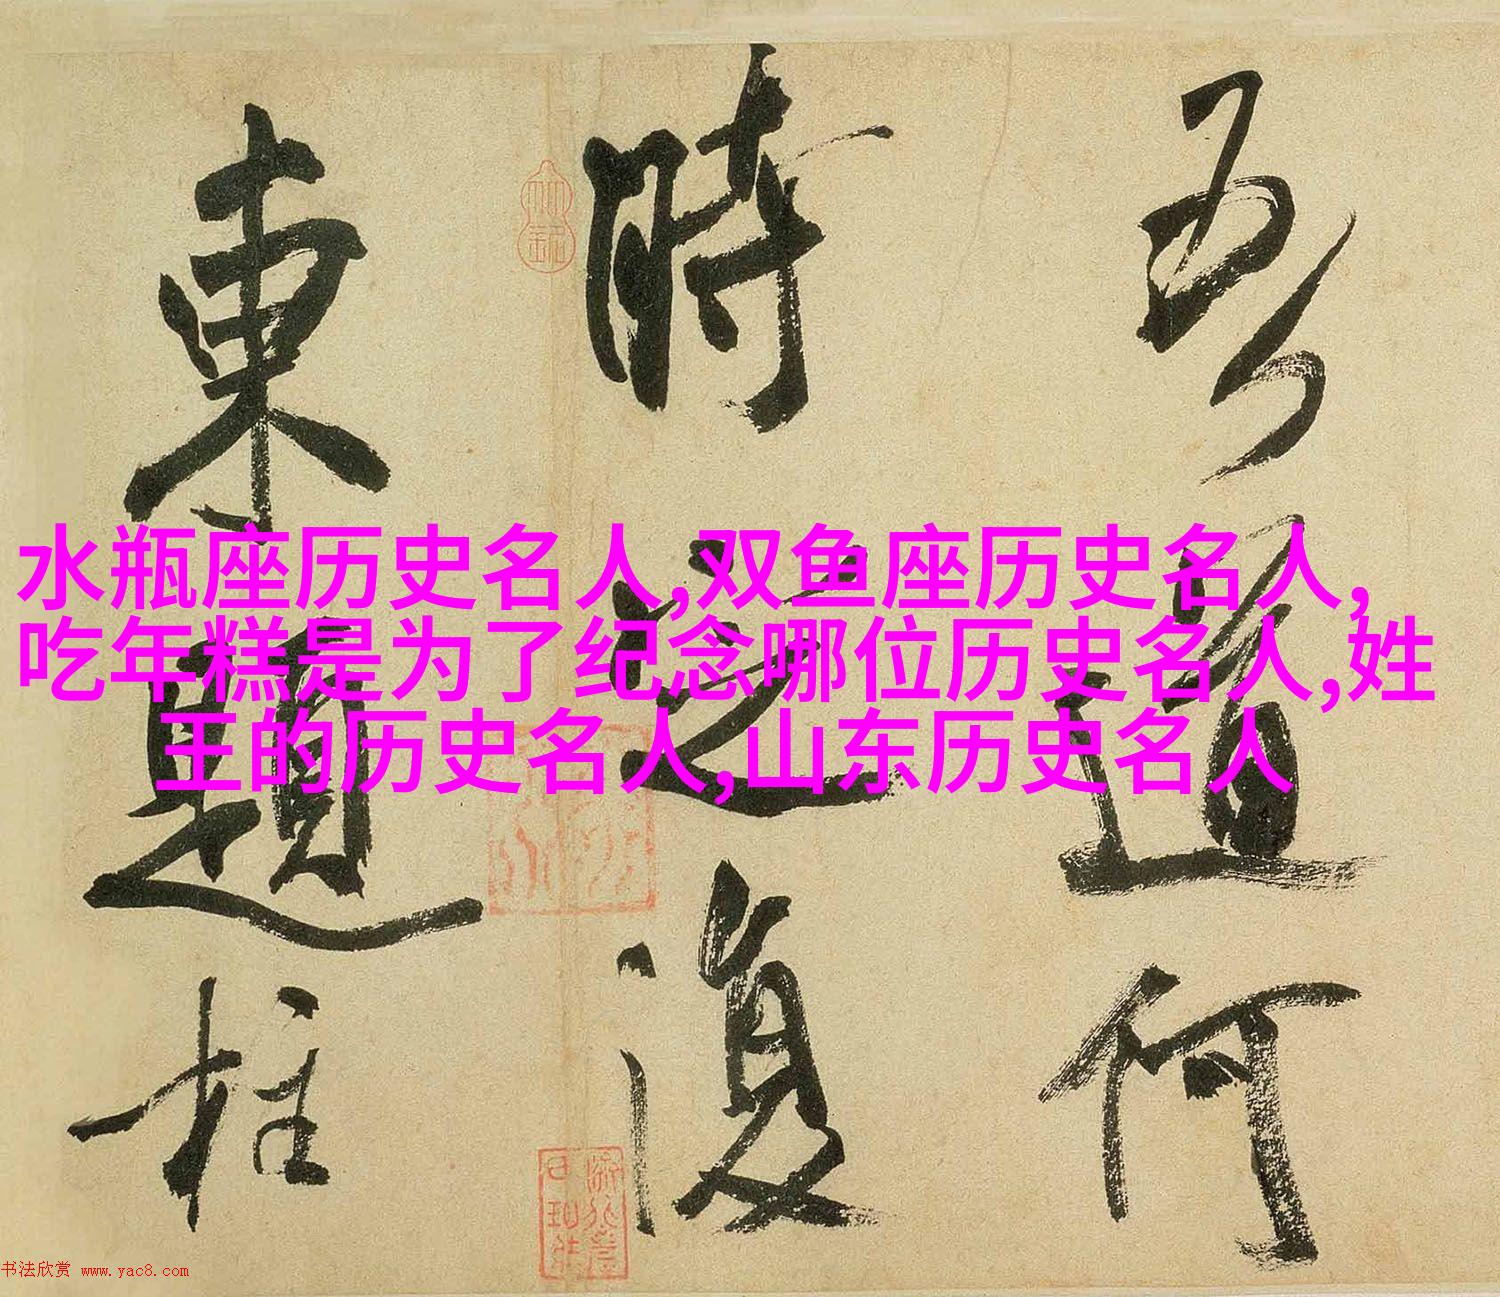 吾道何
時之復
東題柱
水瓶座历史名人,双鱼座历史名人,
吃年糕是为了纪念哪位历史名人,姓
王的历史名人,山东历史名人
书法欣赏 www.yac8.com